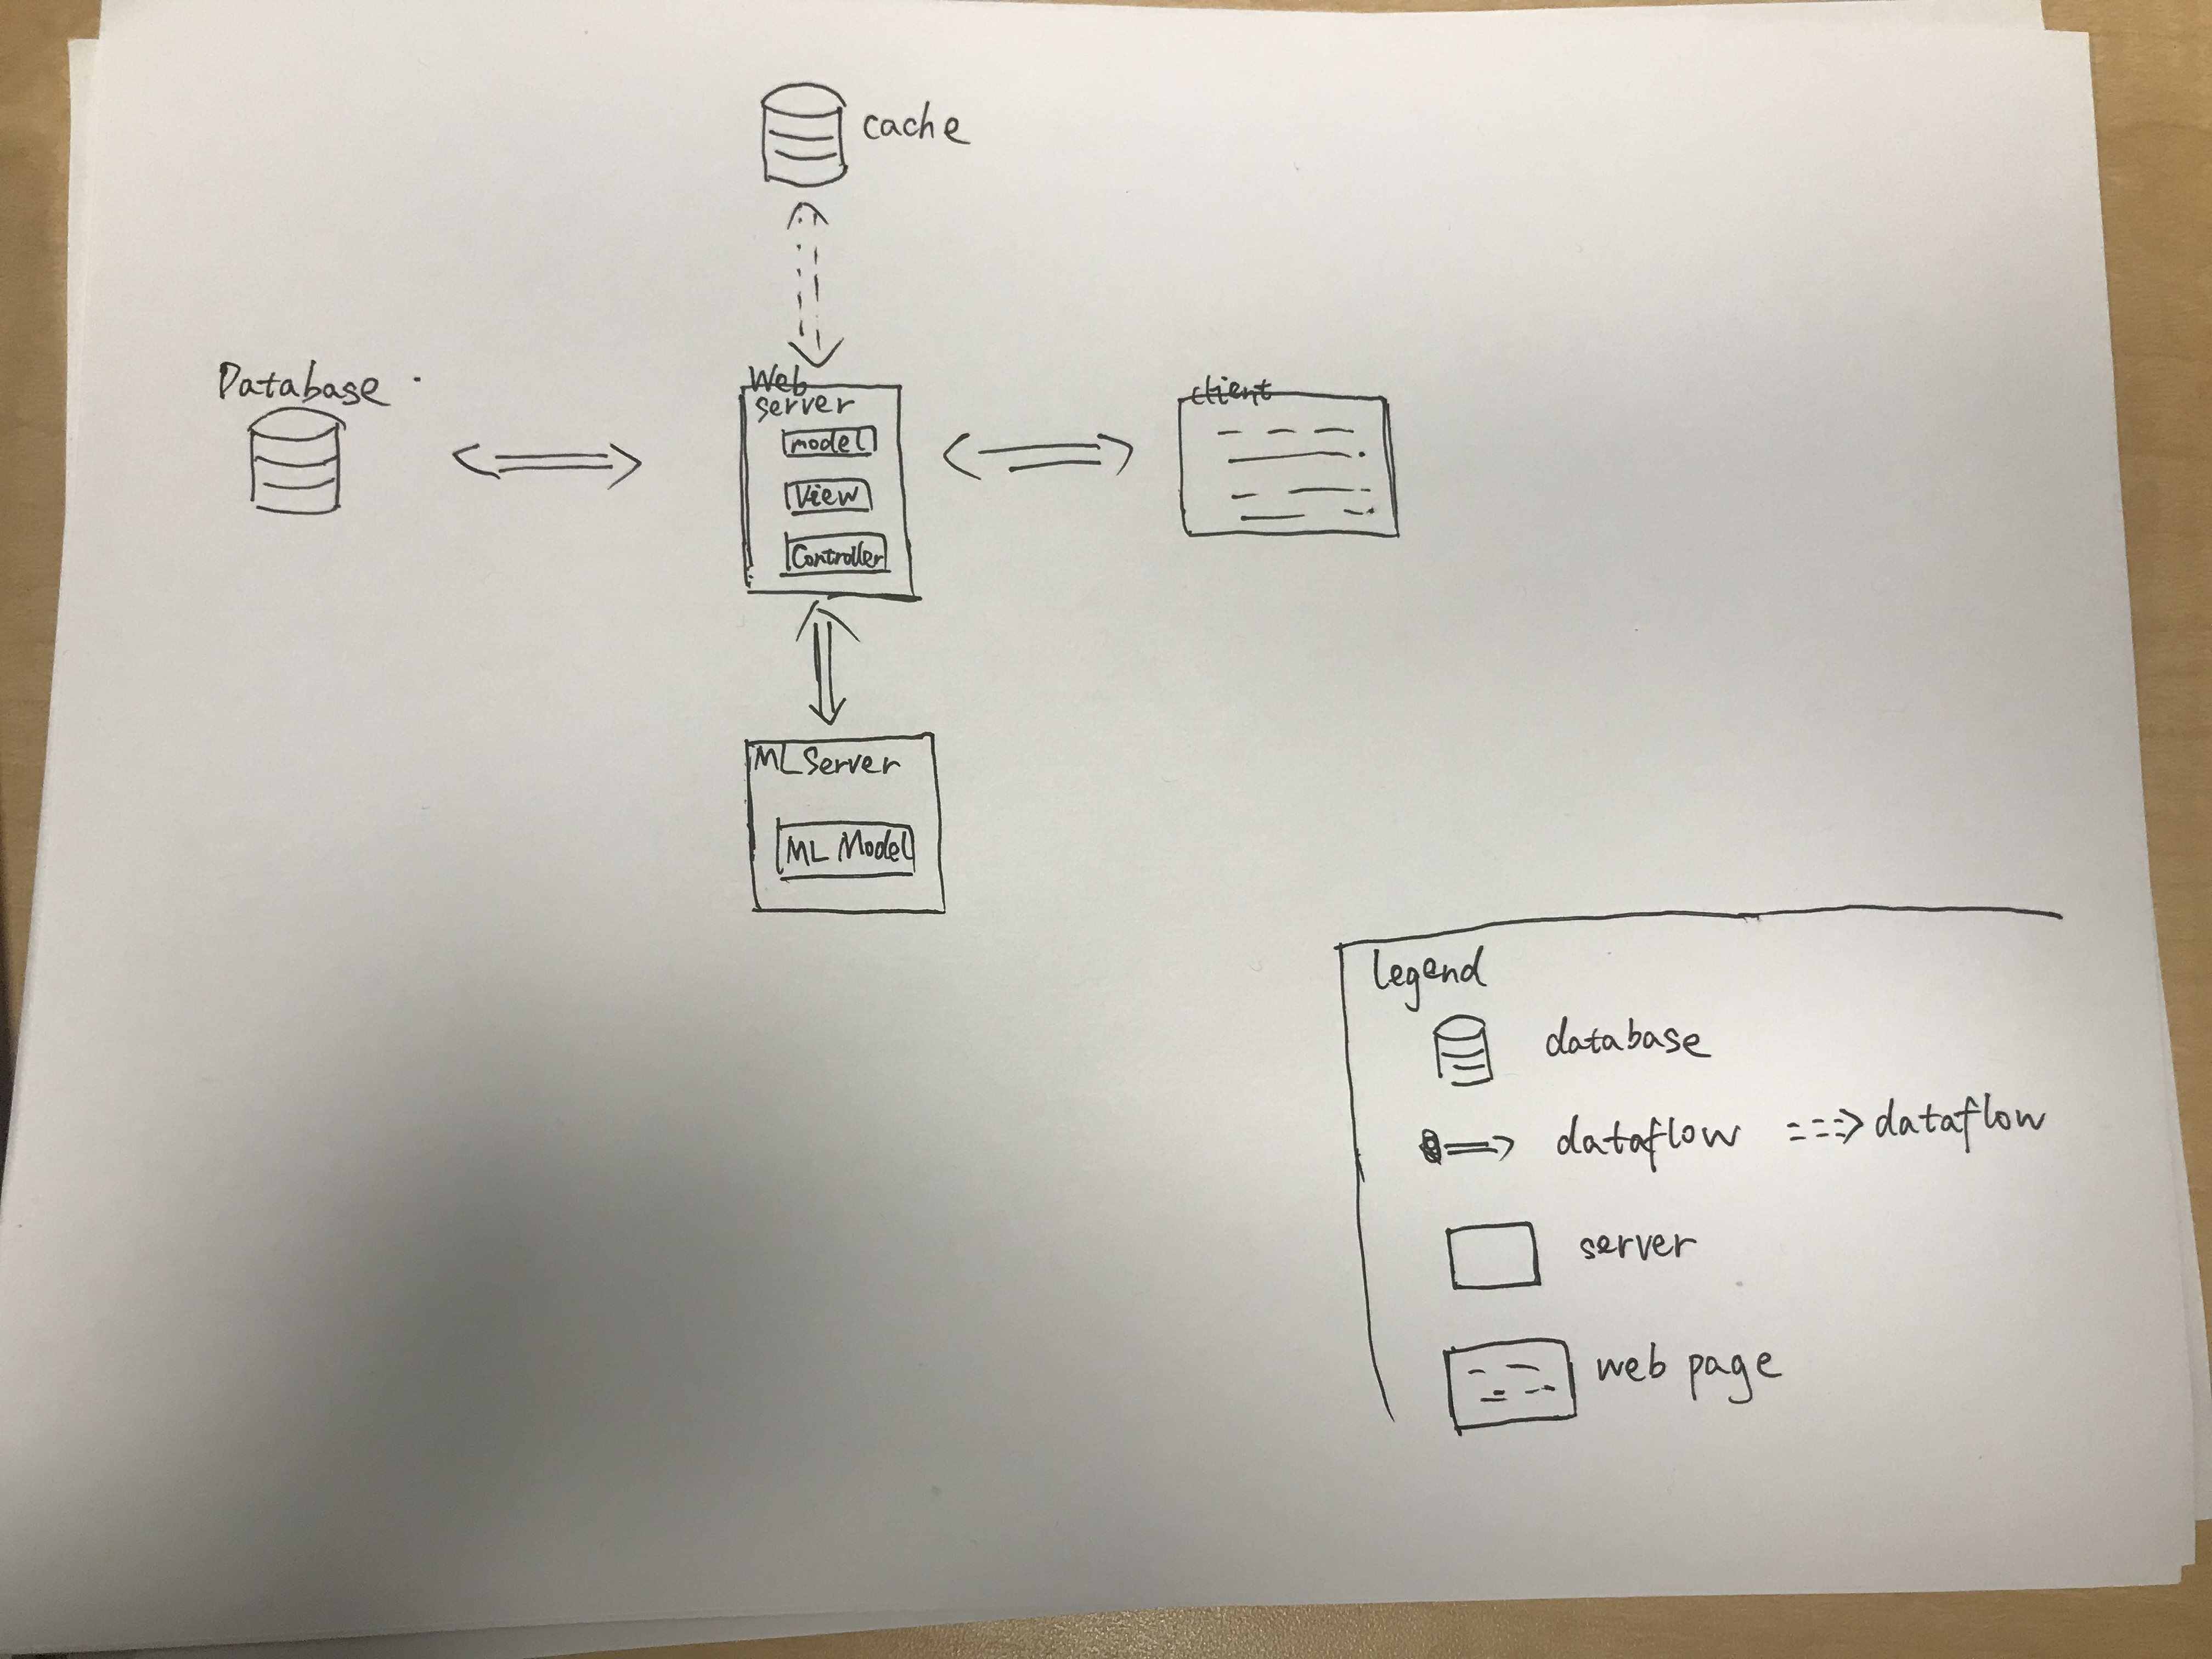 cache
Database
Web
server
model
View
Controller
client
ML Server
ML Model
legend
database
dataflow
dataflow
server
web page